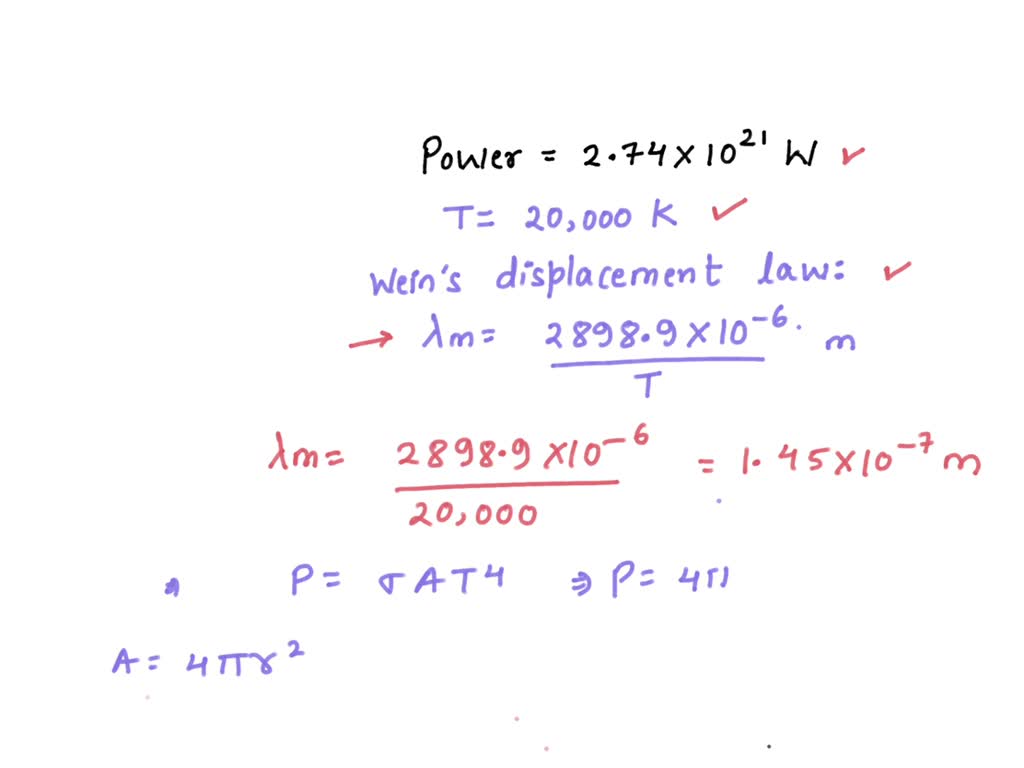 Power = 2.74×10²¹ W ✓
T= 20,000 K ✓
Wein's displacement law: ✓
→ λm= 2898.9×10⁻⁶ / T m
λm= 2898.9×10⁻⁶ / 20,000 = 1.45×10⁻⁷ m
P= σAT⁴ ⇒ P= 4π
A= 4πr²